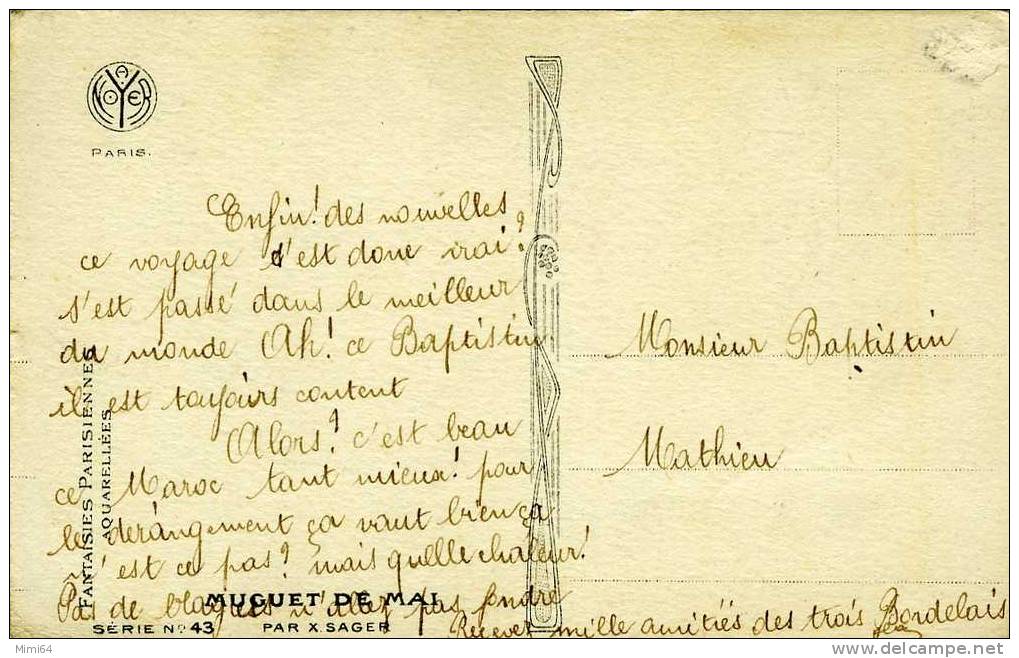 A. NOYER
PARIS.
Enfin! des nouvelles
ce voyage s'est donc vrai?
s'est passé dans le meilleur
du monde Ah! ce Baptistin
il est toujours content
Alors? c'est beau
ce Maroc tant mieux! pour
le derangement ça vaut bien ça
n'est ce pas? mais quelle chaleur!
Pas de blagues n'allez pas fondre
Recevez mille amitiés des trois Bordelais
Monsieur Baptistin
Mathieu
FANTAISIES PARISIENNES
AQUARELLÉES
MUGUET DE MAI
SÉRIE No 43 PAR X. SAGER
Mimi64
delcampe.net